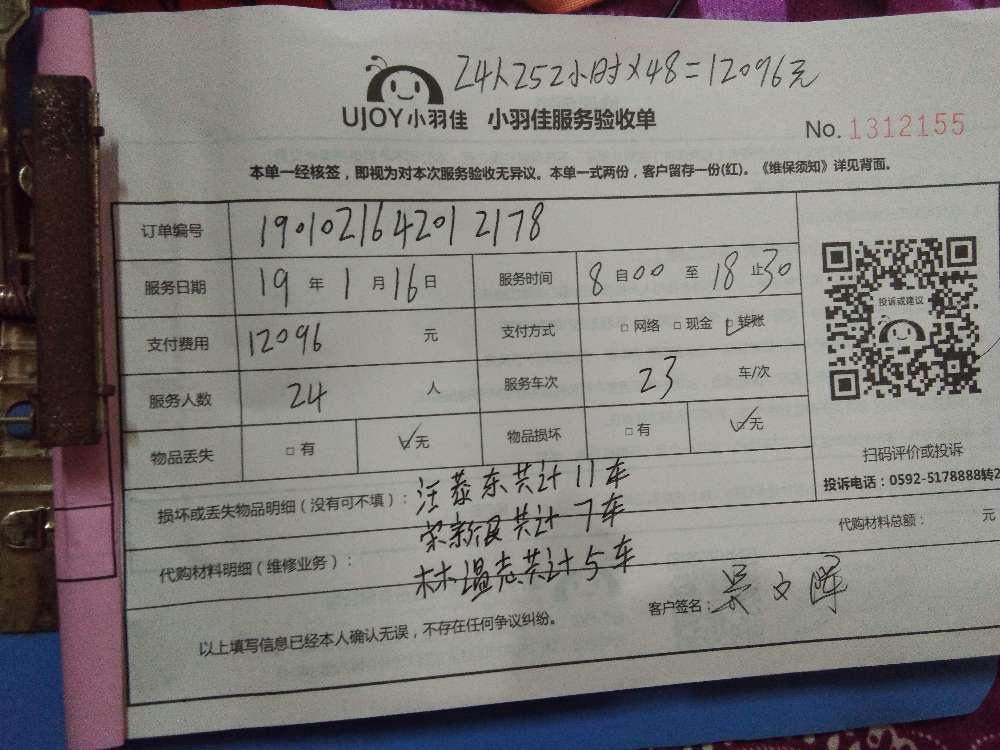 24人252小时×48=12096元
UJOY小羽佳 小羽佳服务验收单
No. 1312155
本单一经核签，即视为对本次服务验收无异议。本单一式两份，客户留存一份(红)。《维保须知》详见背面。
订单编号 190102164201 2178
服务日期 19 年 1 月 16 日 服务时间 8 自 00 至 18 止 30
投诉或建议
支付费用 12096 元 支付方式 □ 网络 □ 现金 □ 转账
服务人数 24 人 服务车次 23 车/次
物品丢失 □ 有 □ 无 物品损坏 □ 有 □ 无
扫码评价或投诉
投诉电话：0592-5178888转2
损坏或丢失物品明细（没有可不填）： 汪泰东共计11车
共计7车
代购材料总额： 元
代购材料明细（维修业务）： 林温志共计5车
客户签名： 吴文晖
以上填写信息已经本人确认无误，不存在任何争议纠纷。